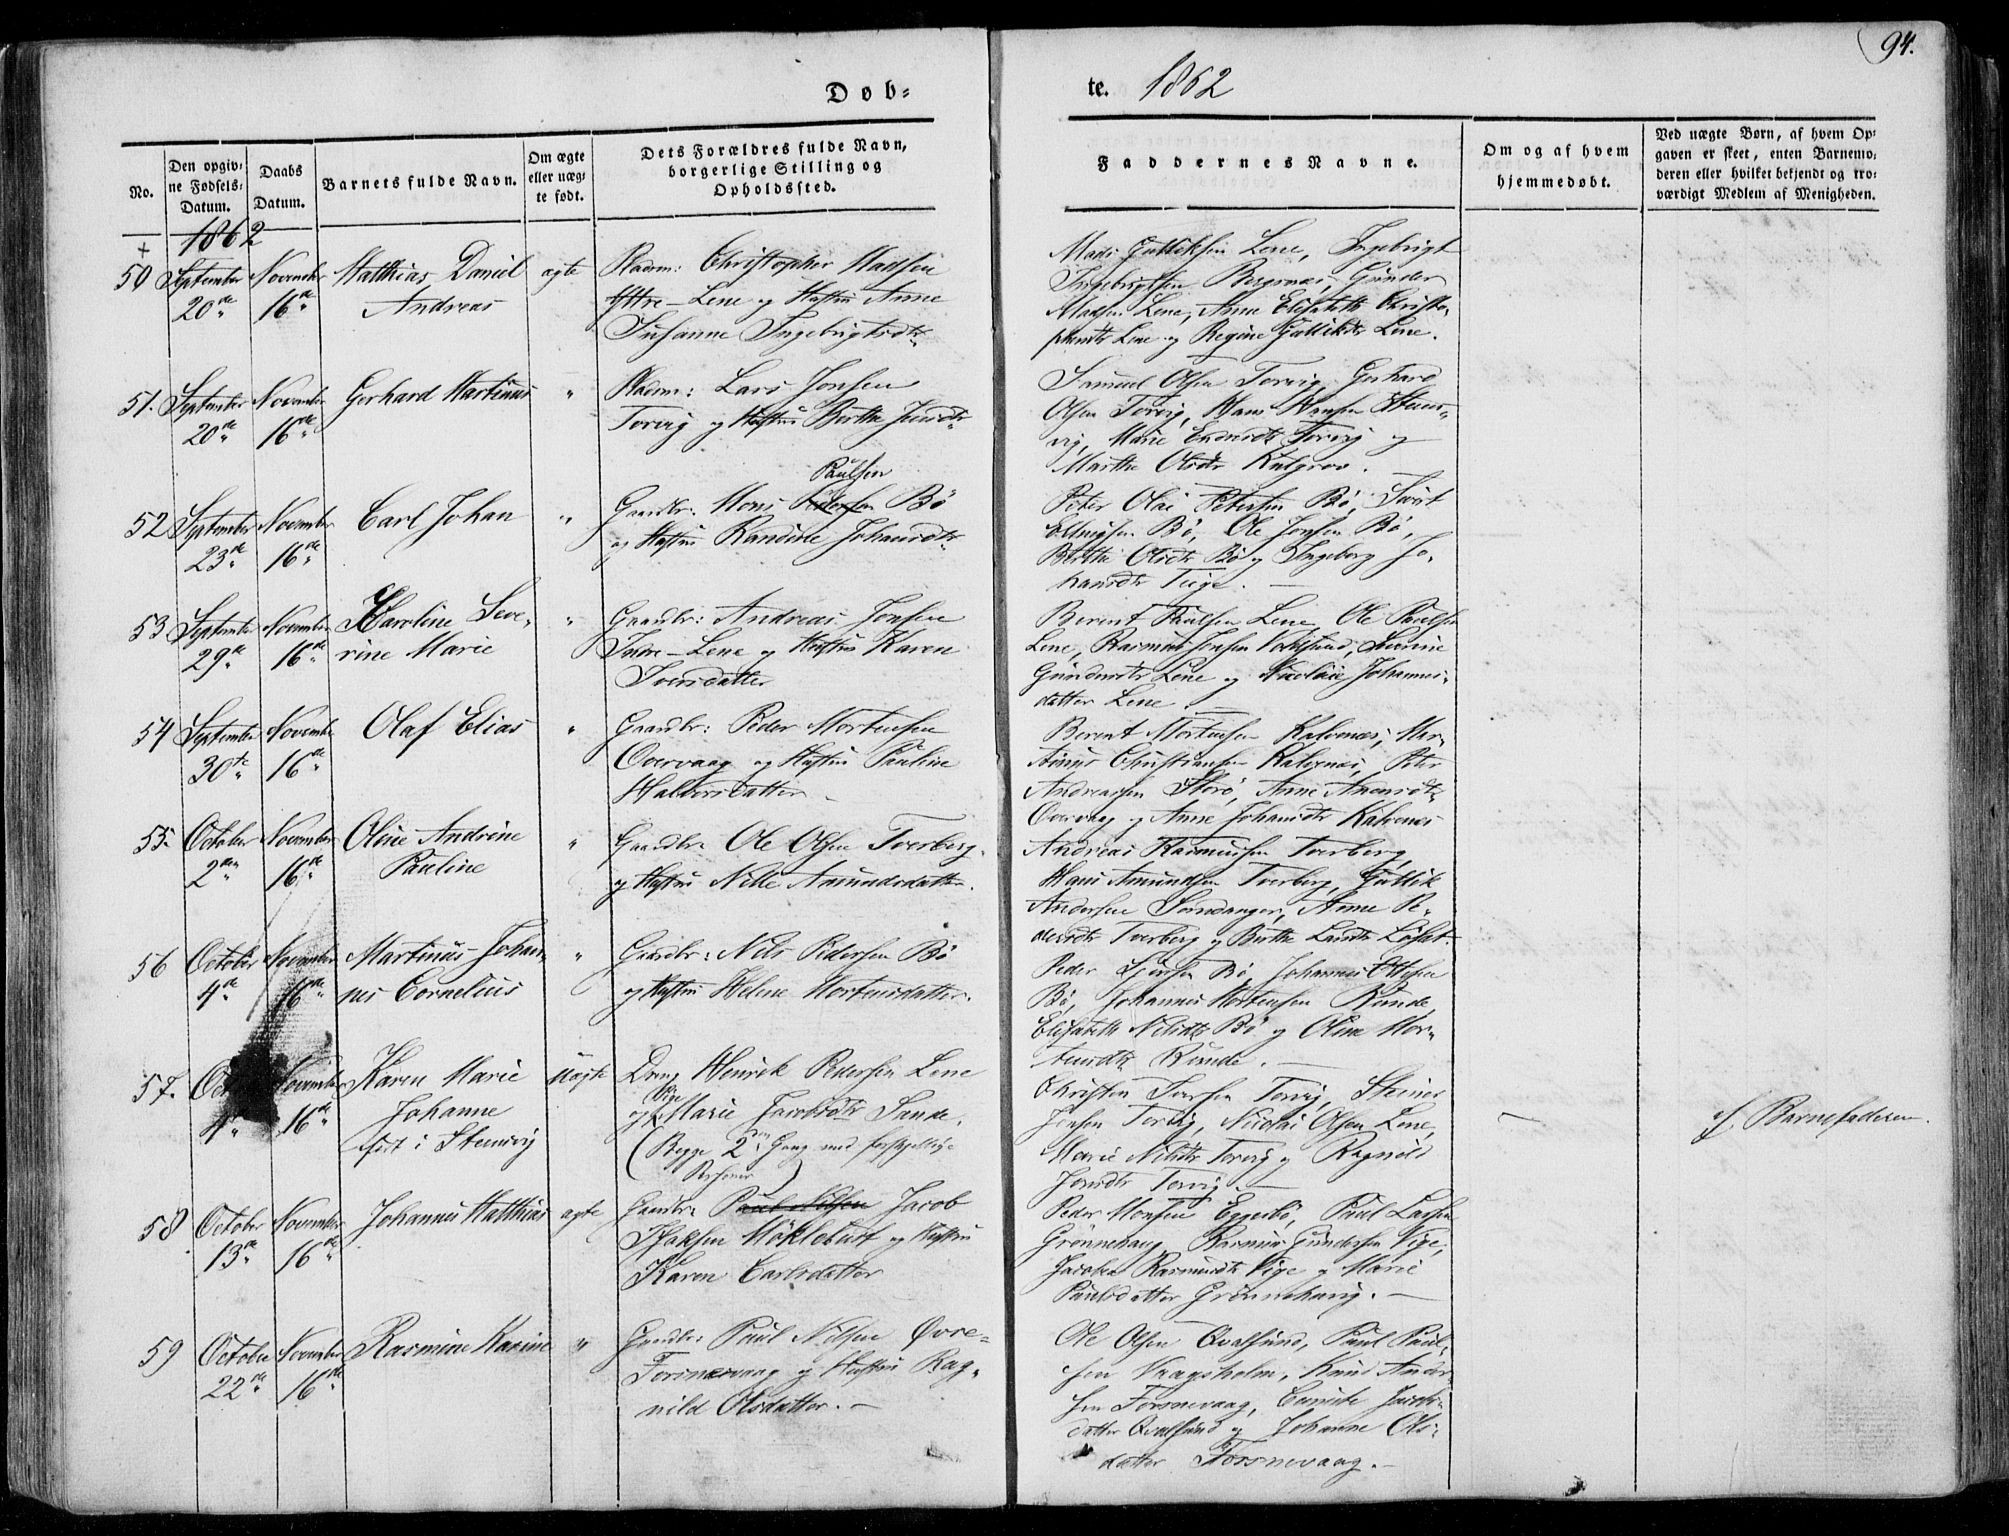 94.
Døb=
te. 1862
No.
Den opgiv=
ne Fødsels=
Datum.
Daabs
Datum.
Barnets fulde Navn.
Om ægte
eller uæg=
te født.
Dets Forældres fulde Navn,
borgerlige Stilling og
Opholdssted.
Faddernes Navne.
Om og af hvem
hjemmedøbt.
Ved uægte Børn, af hvem Op=
gaven er skeet, enten Barnemo=
deren eller hvilket bekjendt og tro=
værdigt Medlem af Menigheden.
1862
+
50 September 20de November 16de
Matthias Daniel
Andreas
ægte
Pladsm: Christopher Madsen
Yttre-Lene og Hustru Anne
Susanne Ingebrigtsdtr.
Mads Gulliksen Lene, Ingebrigt
Ingebrigtsen Bergsnes, Gunder
Madsen Lene, Anne Elisabeth Christo-
phersdtr Lene og Regine Gulliksdtr Lene.
51. September 20de November 16de
Gerhard Martinus
"
Pladsm: Lars Jonsen
Torvig og Hustru Berthe
Samuel Olsen Torvig, Gerhard
Olsen Torvig, Hans Hansen Steins-
vig, Marie Torvig og
Marthe Olsdtr
52 September 23de November 16de
Carl Johan
"
Paulsen
Gaardbr: Mons Pedersen Bö
og Hustru Randine Johansdtr.
Peter Olai Petersen Bö, Sivert
Bö, Ole Jonsen Bö,
Berthe Olsdtr Bö og Ingeborg Jo-
hansdtr
53 September 29de November 16de
Karoline Seve-
rine Marie
"
Gaardbr: Andreas Jonsen
Indre-Lene og Hustru Karen
Iversdatter
Berent Paulsen Lene, Ole Paulsen
Lene, Rasmus Jonsen Voldsund,
Gundersdtr Lene og Nicoline Johannes-
datter Lene.
54 September 30te November 16de
Olaf Elias
"
Gaardbr: Peder Mortensen
Overvaag og Hustru Pauline
Halvorsdatter
Berent Mortensen Kalvenes, Mar-
tinus Christiansen Kalvenes, Peter
Andreassen Storö, Anne
Overvaag og Anne Johansdtr Kalvenes
55. October 2den November 16de
Oline Andrine
Pauline
"
Gaardbr. Ole Olsen Tverberg
og Hustru Nille Amundsdatter.
Andreas Rasmussen Tverberg,
Hans Amundsen Tverberg, Gullik
Andersen Sørmdanger, Anne Pe-
dersdtr Tverberg og Berthe Larsdtr
56 October 4de November 16de
Martinus Johan-
nes Cornelius
"
Gaardbr: Nils Pedersen Bö
og Hustru Helene Mortensdatter.
Peder Bö, Johannes Ottesen
Bö, Johannes Mortensen Runde,
Elisabeth Nilsdtr Bö og Oline Mor-
tensdtr Runde.
57. 4de November 16de
Karen Marie
Johanne
født i Steinsvig
uægte
Dreng Henrik Pedersen Lene
og Pige Marie Jacobsdtr Sande.
(Begge 2den Gang med forskjellige
Personer)
Christen Iversen Torvig, Steiner
Jonsen Torvig, Nicolai Olsen Lene,
Marie Nilsdtr Torvig og Ragnild
Jonsdtr Torvig.
af Barnefaderen.
58 October 13de November 16de
Johannes Matthias
ægte
Gaardbr: Paul Nilsen Jacob
Isaksen Möklebust og Hustru
Karen Carlsdatter
Peder Monsen Eggesbö, Paul Larsen
Grønnehaug, Rasmus Gundersen Vige,
Rasmusdtr Vige og Marie
Paulsdatter Grönnehaug.
59 October 22de November 16de
Rasmine Karine
"
Gaardbr: Paul Nilsen Övre-
Forsnevaag og Hustru Rag-
nild Olsdatter.
Ole Olsen Qvalsund, Paul Paul-
sen Vaagsholm, Knud Ander-
sen Forsnevaag, Jacobs-
datter Qvalsund og Johanne Ols-
datter Forsnevaag.